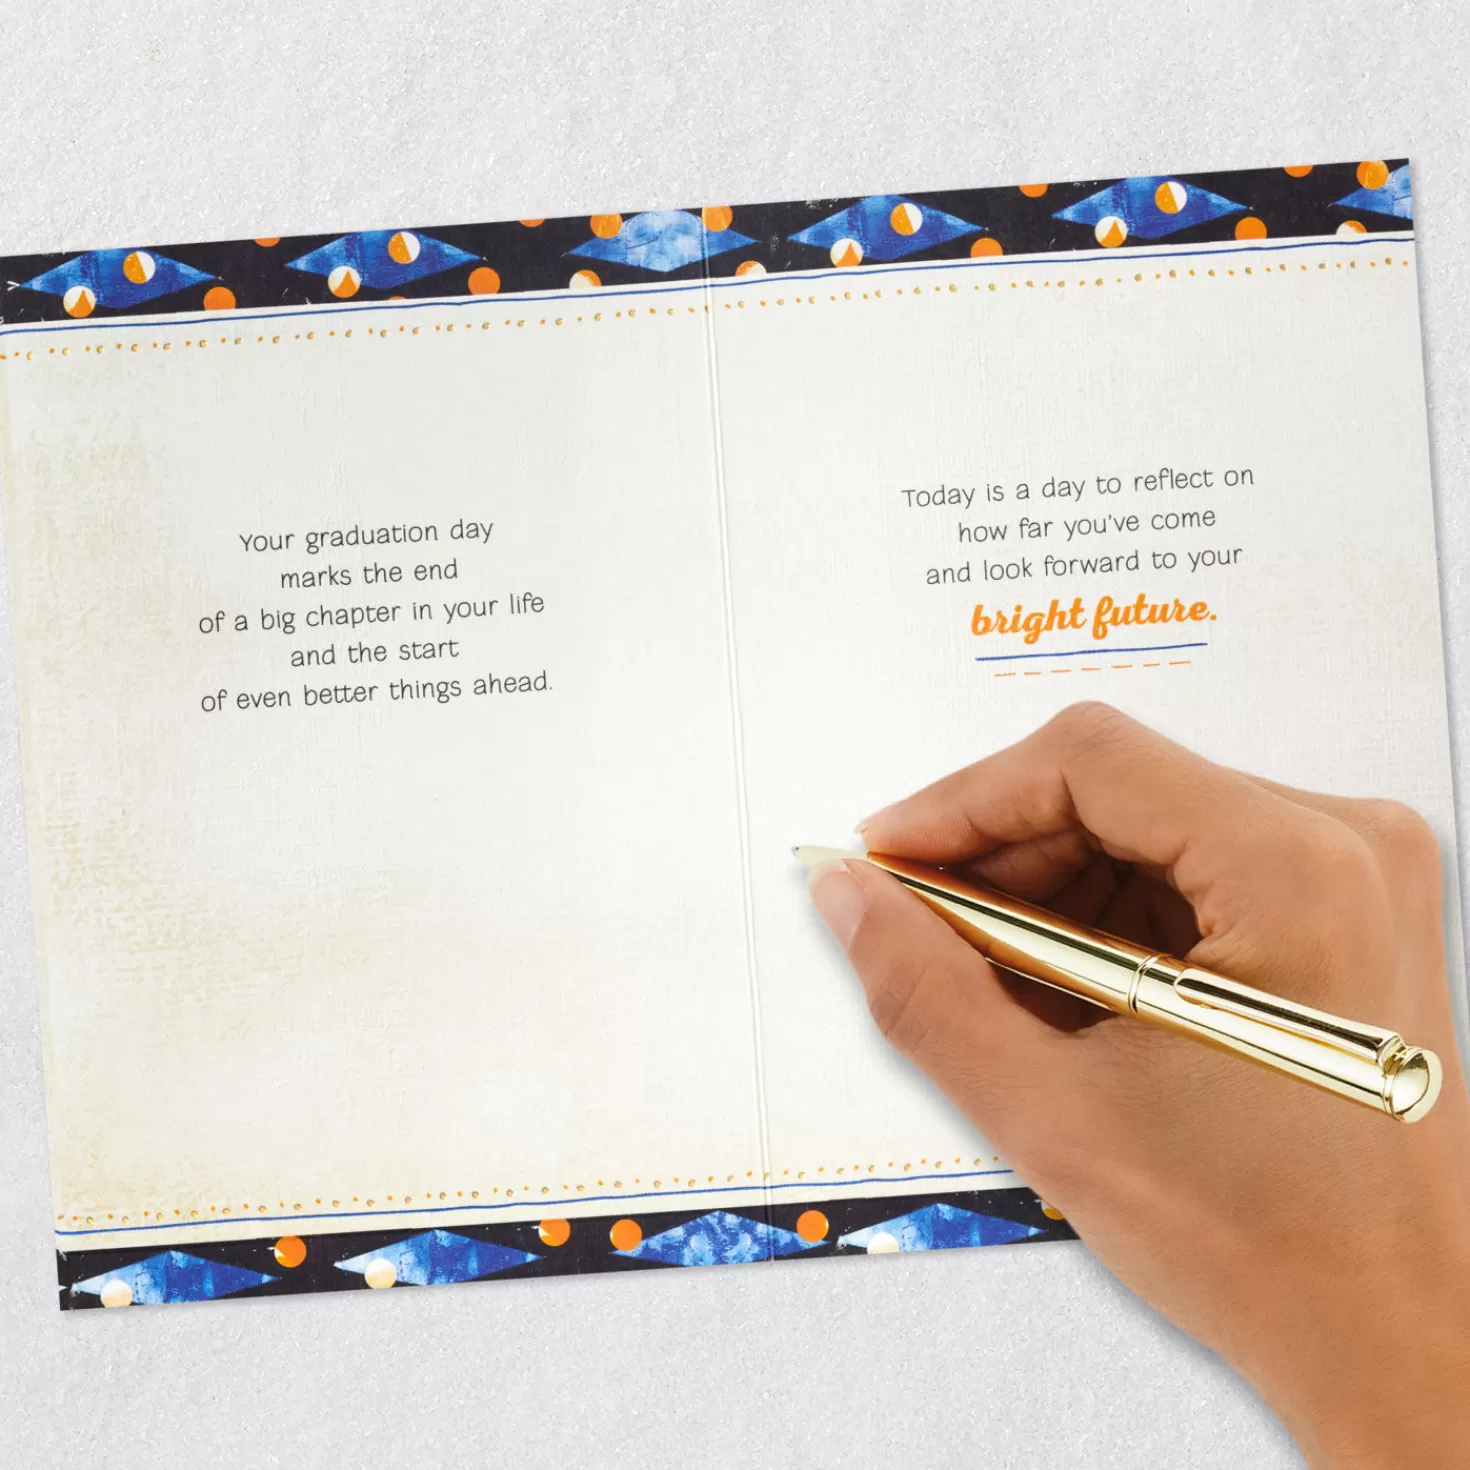 Your graduation day
marks the end
of a big chapter in your life
and the start
of even better things ahead.
Today is a day to reflect on
how far you've come
and look forward to your
bright future.